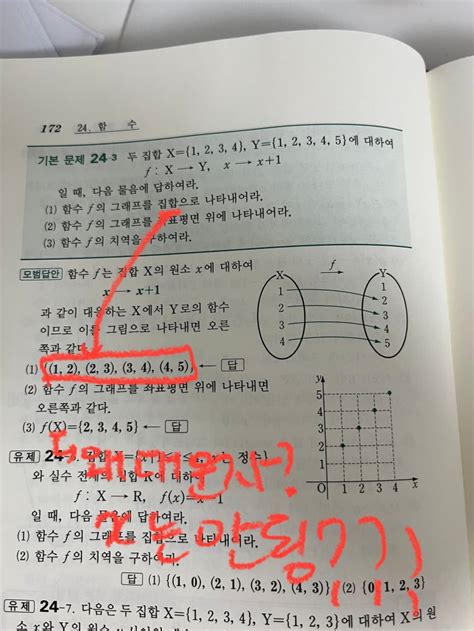 172 24. 함 수
기본 문제 24-3 두 집합 X={1, 2, 3, 4}, Y={1, 2, 3, 4, 5}에 대하여
f : X → Y, x → x+1
일 때, 다음 물음에 답하여라.
(1) 함수 f의 그래프를 집합으로 나타내어라.
(2) 함수 f의 그래프를 좌표평면 위에 나타내어라.
(3) 함수 f의 치역을 구하여라.
모범답안 함수 f는 집합 X의 원소 x에 대하여
x → x+1
과 같이 대응하는 X에서 Y로의 함수
이므로 이를 그림으로 나타내면 오른
쪽과 같다.
(1) {(1, 2), (2, 3), (3, 4), (4, 5)} ← 답
(2) 함수 f의 그래프를 좌표평면 위에 나타내면
오른쪽과 같다.
(3) f(X)={2, 3, 4, 5} ← 답
X f Y
1 1
2 2
3 3
4 4
5
y
5
4
3
2
1
O 1 2 3 4 x
왜 대문자?
x는 안됨???
유제 24-
와 실수 전체의 집합 R에 대하여
f : X → R, f(x)=
일 때, 다음 물음에 답하여라.
(1) 함수 f의 그래프를 집합으로
(2) 함수 f의 치역을 구하여라.
답 (1) {(1, 0), (2, 1), (3, 2), (4, 3)} (2) {0, 1, 2, 3}
유제 24-7. 다음은 두 집합 X={1, 2, 3, 4}, Y={1, 2, 3, 4}에 대하여 X의 원